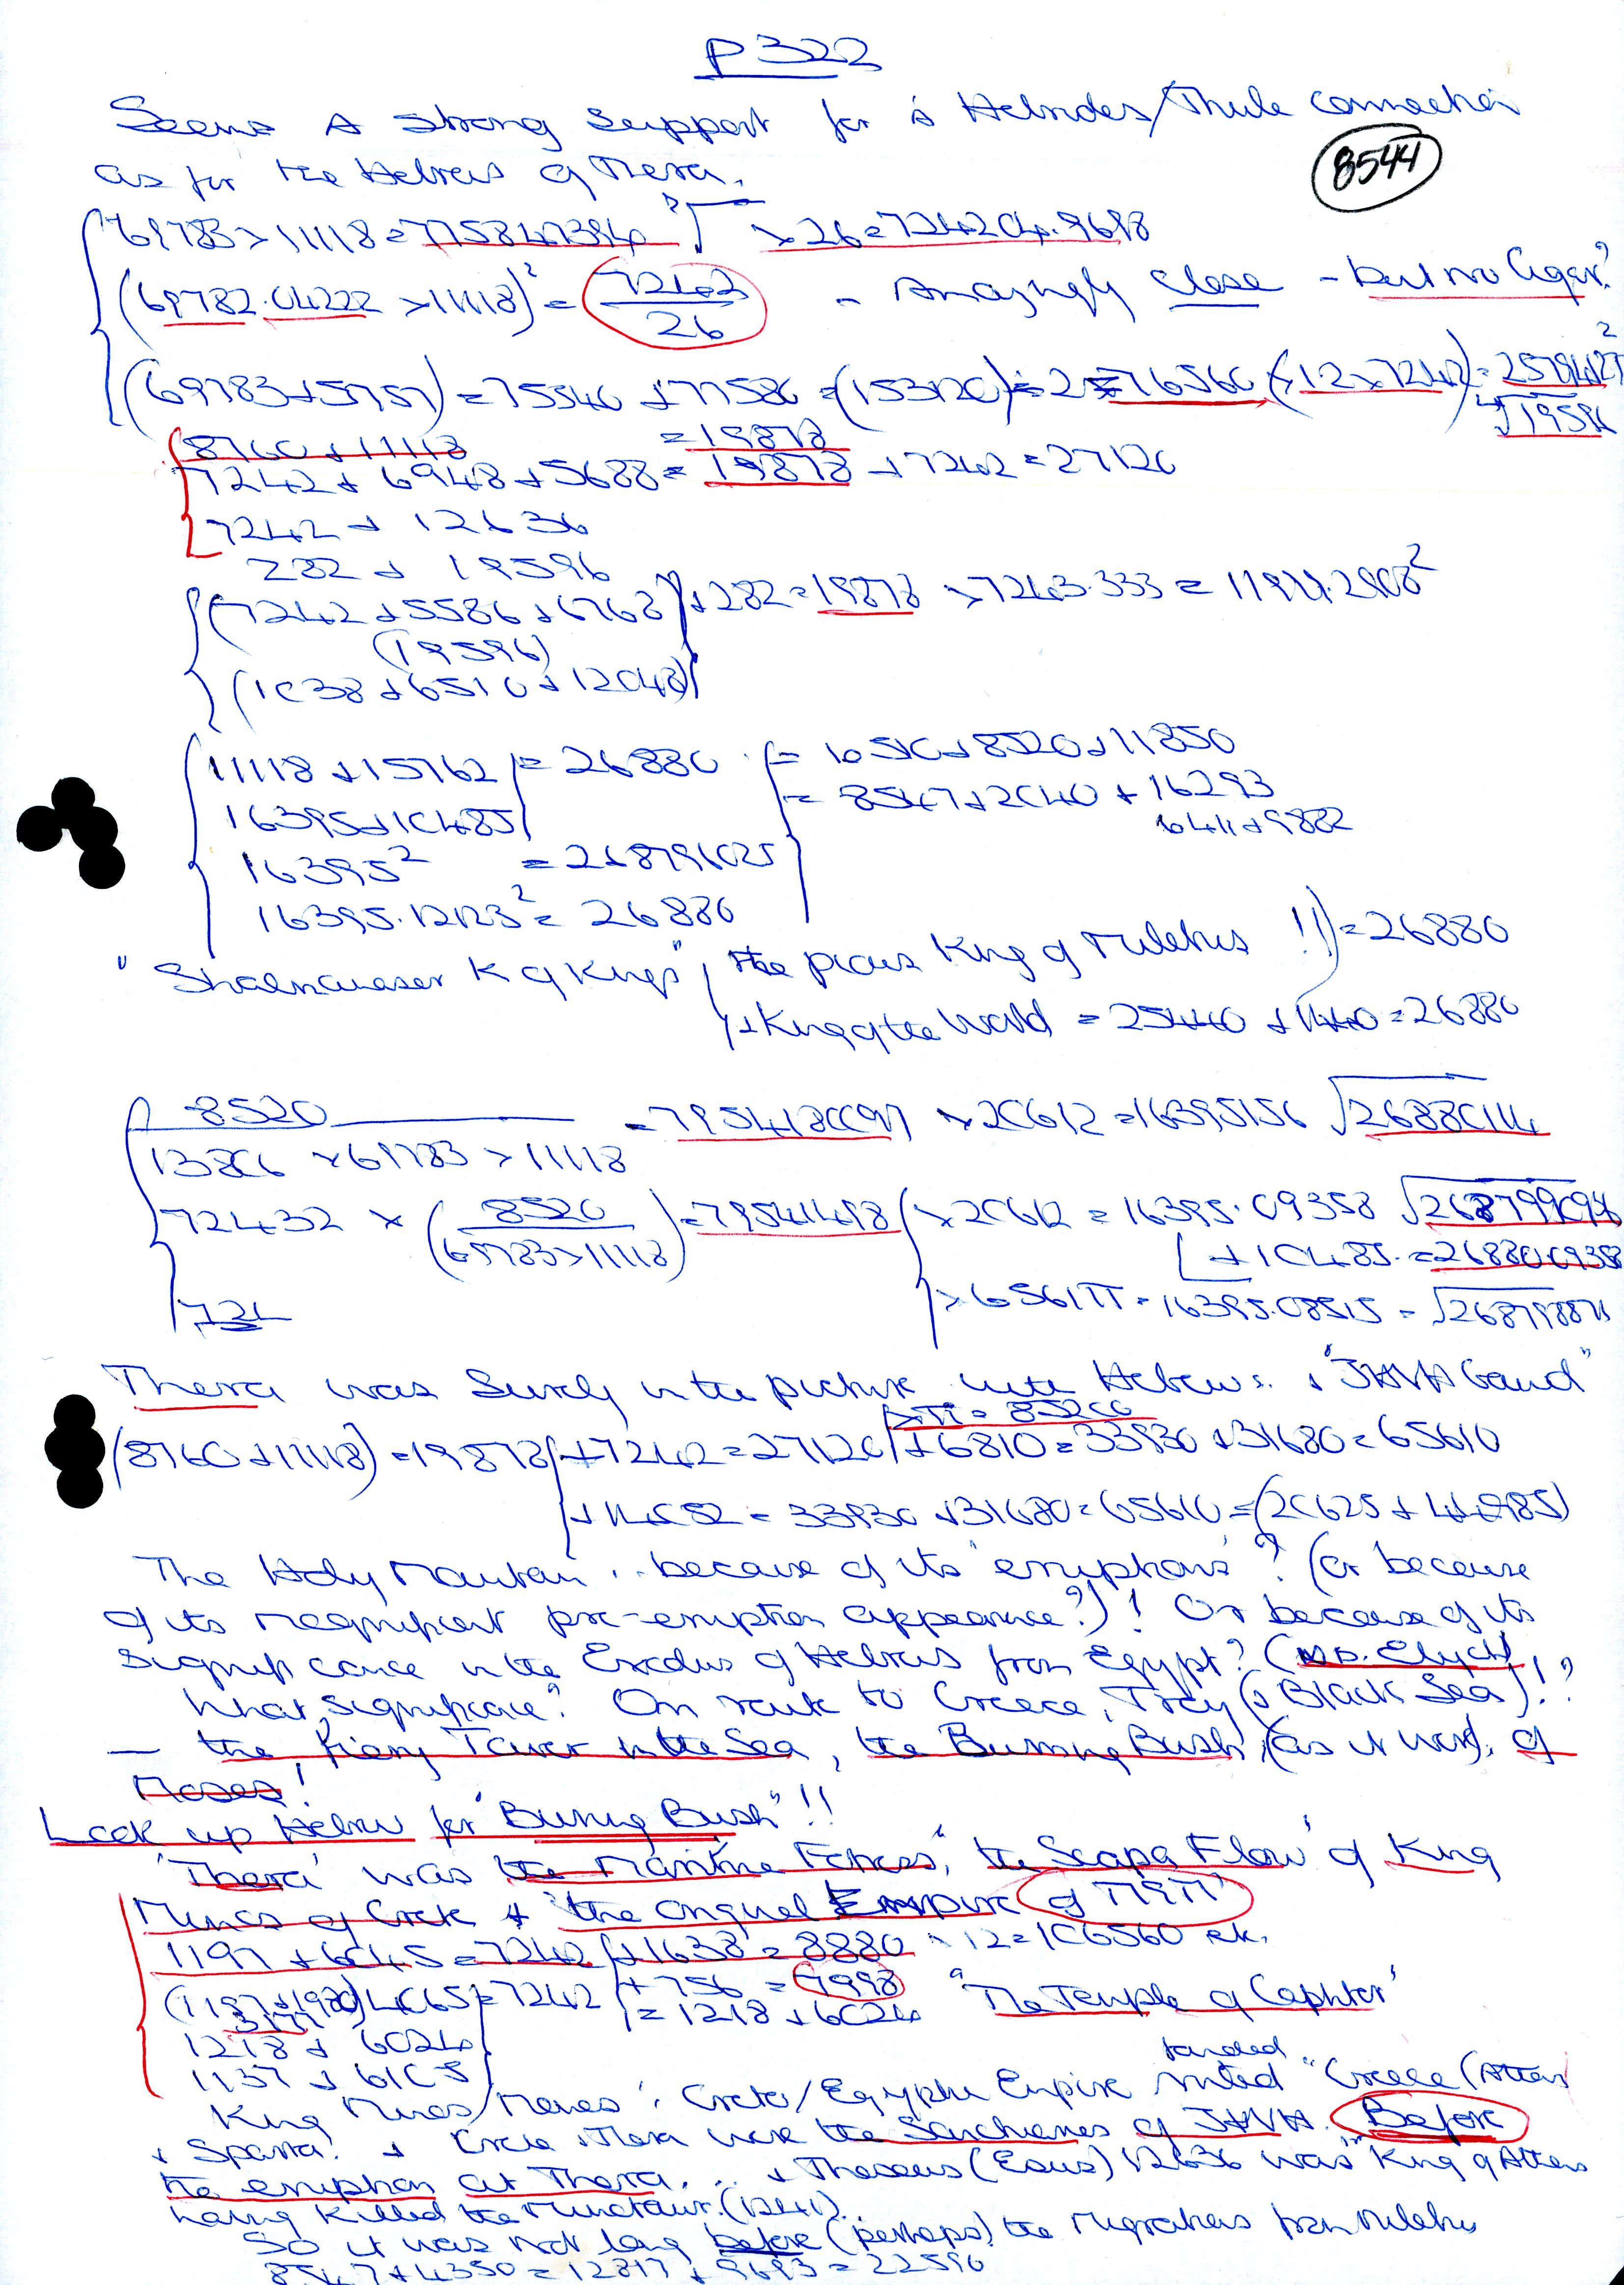 P322
Seems A strong support for a Hebrides/Thule connection
as for the Hebrews of Thera.
8544
69783 × 11118 = 775847394 √ × 26 = 724204.9698
(69782.04222 × 11118)² = 7243/26 - Amazingly close - but no cigar?
(69783 + 5757) = 75540 + 77580 = (153120) ÷ 2 = 76560 (× 12 × 7242)
8760 + 11118 = 19878
7242 + 6948 + 5688 = 19878 + 7242 = 27120
7242 + 12636
282 + 19596
(7242 + 5586 + 6768) + 282 = 19878 × 7243.333 =
(19596)
(1038 + 6510 + 12048)
11118 + 15762 = 26880 = 6510 + 8520 + 11850
16395 + 10485 = 8547 + 2040 + 16293
6411 + 9882
16395² = 268796025
16395.12123² = 26880
"Shalmanaser K of Kings", the pious King of Miletus !!) = 26880
+ King of the World = 25440 + 1440 = 26880
8520 = 7954180097 × 20612 = 16395156 √26880114
13806 × 69783 × 11118
72432 × (8520 = 79541498 × 20612 = 16395.09358 √268799094
(69783 × 11118) + 10485. = 268800938
724 × 6561π = 16395.08515 =
Thera was surely in the picture with Hebrews. + "JHVH Gaud"
× π = 85200
(8760 + 11118) = 19878 + 7242 = 27120 + 6810 = 33930 + 31680 = 65610
+ 14052 = 33930 + 31680 = 65610 = (20625 + 44985)
The Holy Mountain .. because of its 'eruptions'? (Or because
of its magnificent pre-eruption appearance?)! Or because of its
significance in the Exodus of Hebrews from Egypt?
What significance? On route to Greece, Troy (& Black Sea)!?
— the fiery Tower in the Sea, the Burning Bush, (as it were), of
Moses!
Look up Hebrew for "Burning Bush"!!
'Thera' was the Maritime Fortress, 'the Scapa Flow' of King
Minos of Crete + 'the original Empire of
1197 + 6045 = 7242 + 1638 = 8880 × 12 = 106560 ek.
(1197 + 1980) 4065 = 7242 + 756 = 7998 "The Temple of Caphtor"
3177 = 1218 + 6024
1218 + 6024
1137 + 6105
King Minos/Menes' Crete/Egyptn Empire "Greece (Athens
+ Sparta! + Crete + Thera were the Sanctuaries of JHVH. Before
the eruption at Thera. .. + Theseus (Esaus) 12636 was "King of Athens
having killed the Minotaur.
So it was not long before (perhaps) the migrations from Miletus
8547 + 4350 = 12897 + 9693 = 22590